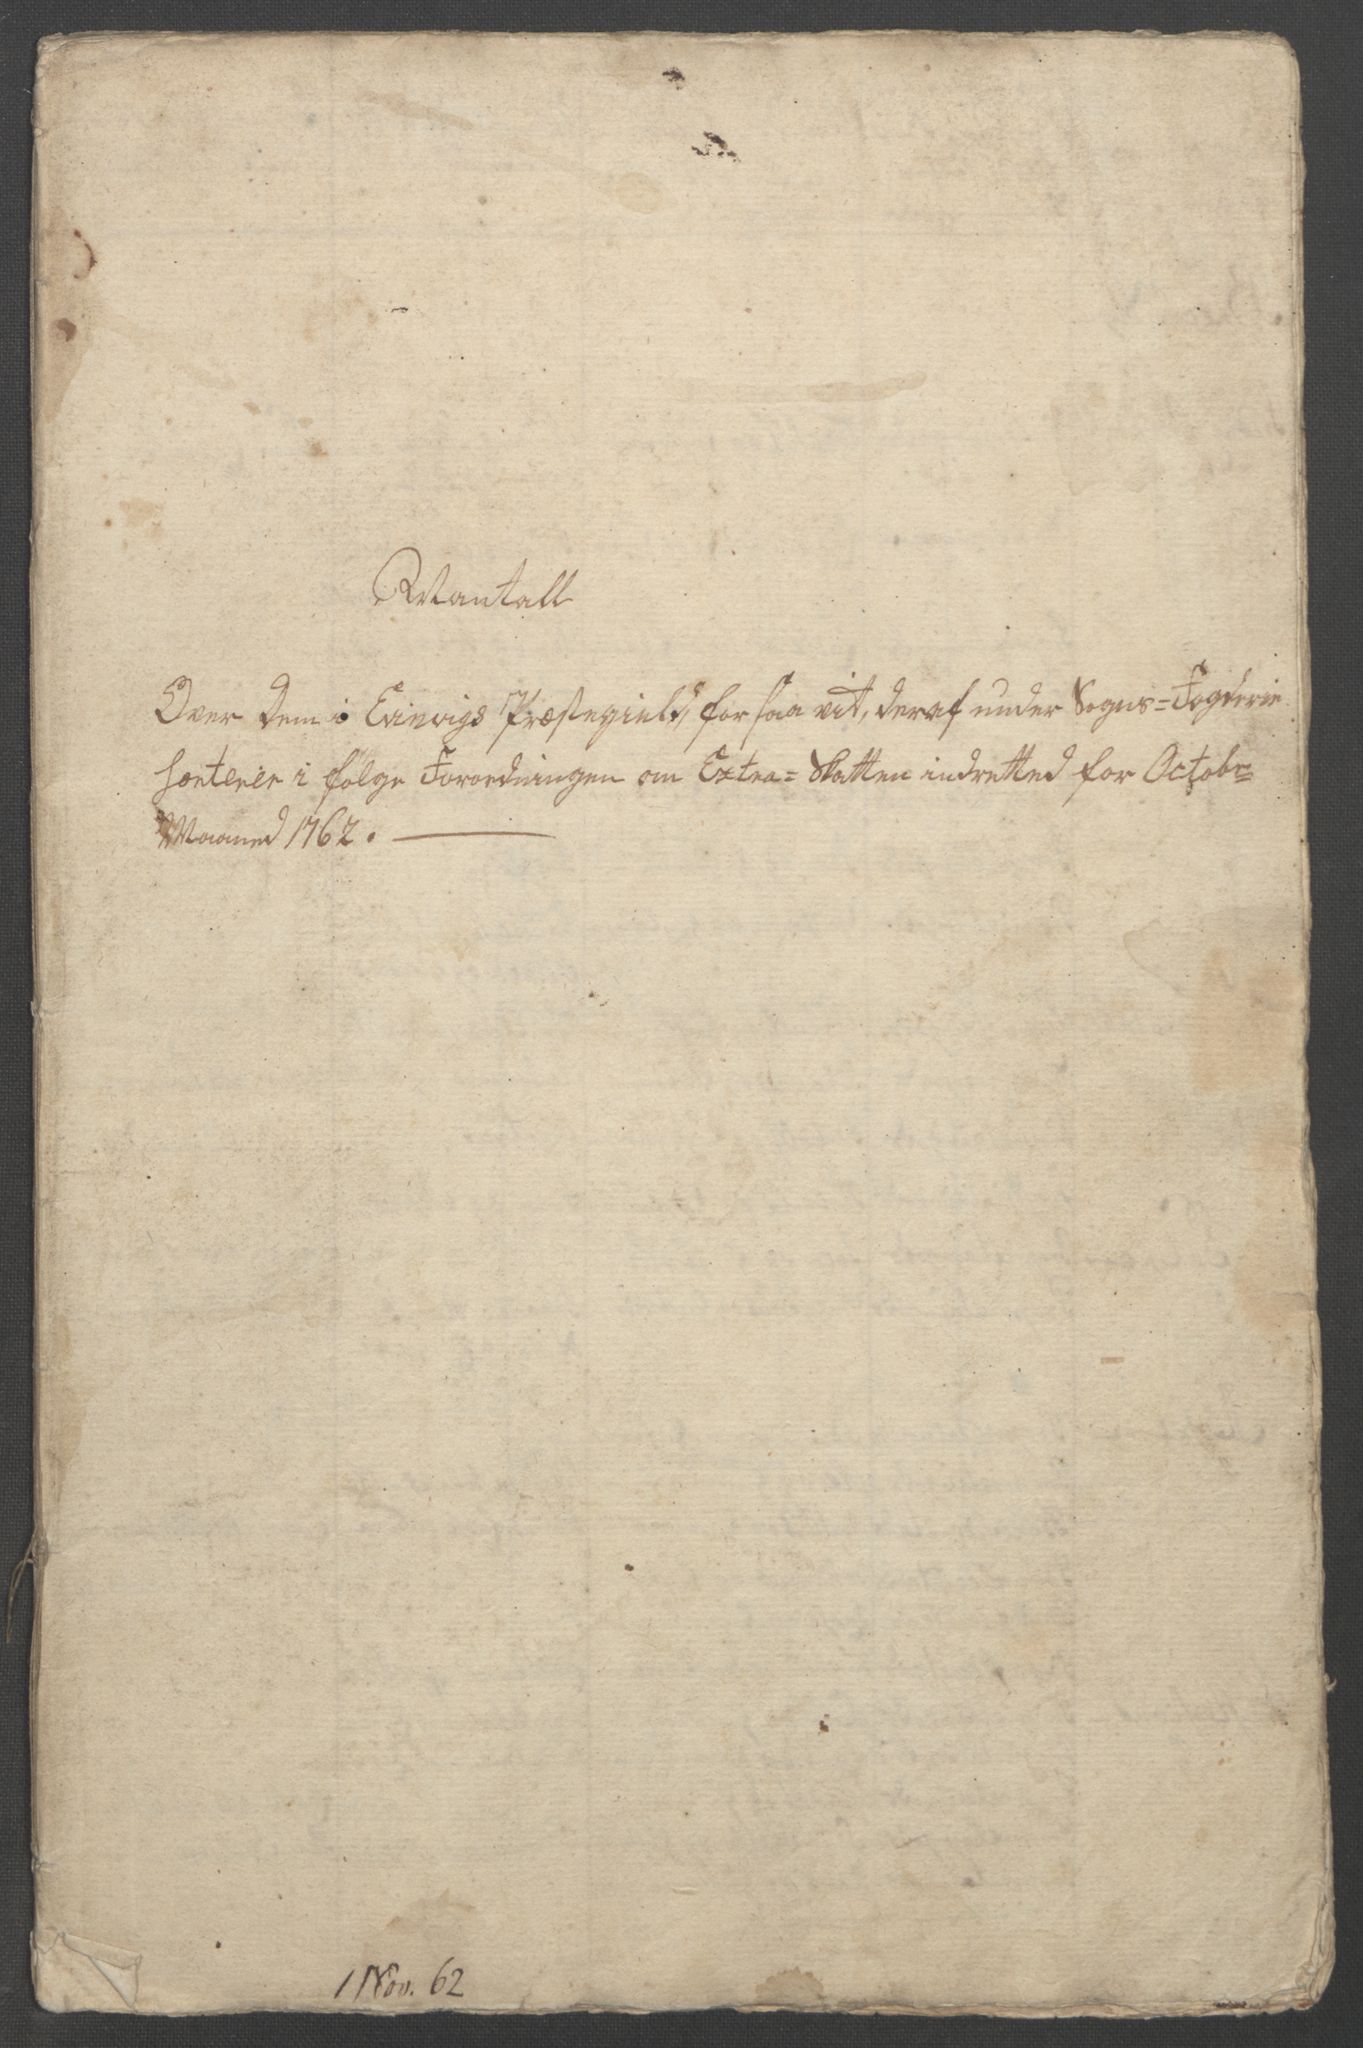 Mantall
Over dem i Evinvigs Præstegield, for saa vit, deraf under Sogns=Fogderie
sorterer i følge Forordningen om Extra=Skatten indretted for Octobr
Maaned 1762.
1 Nov. 62